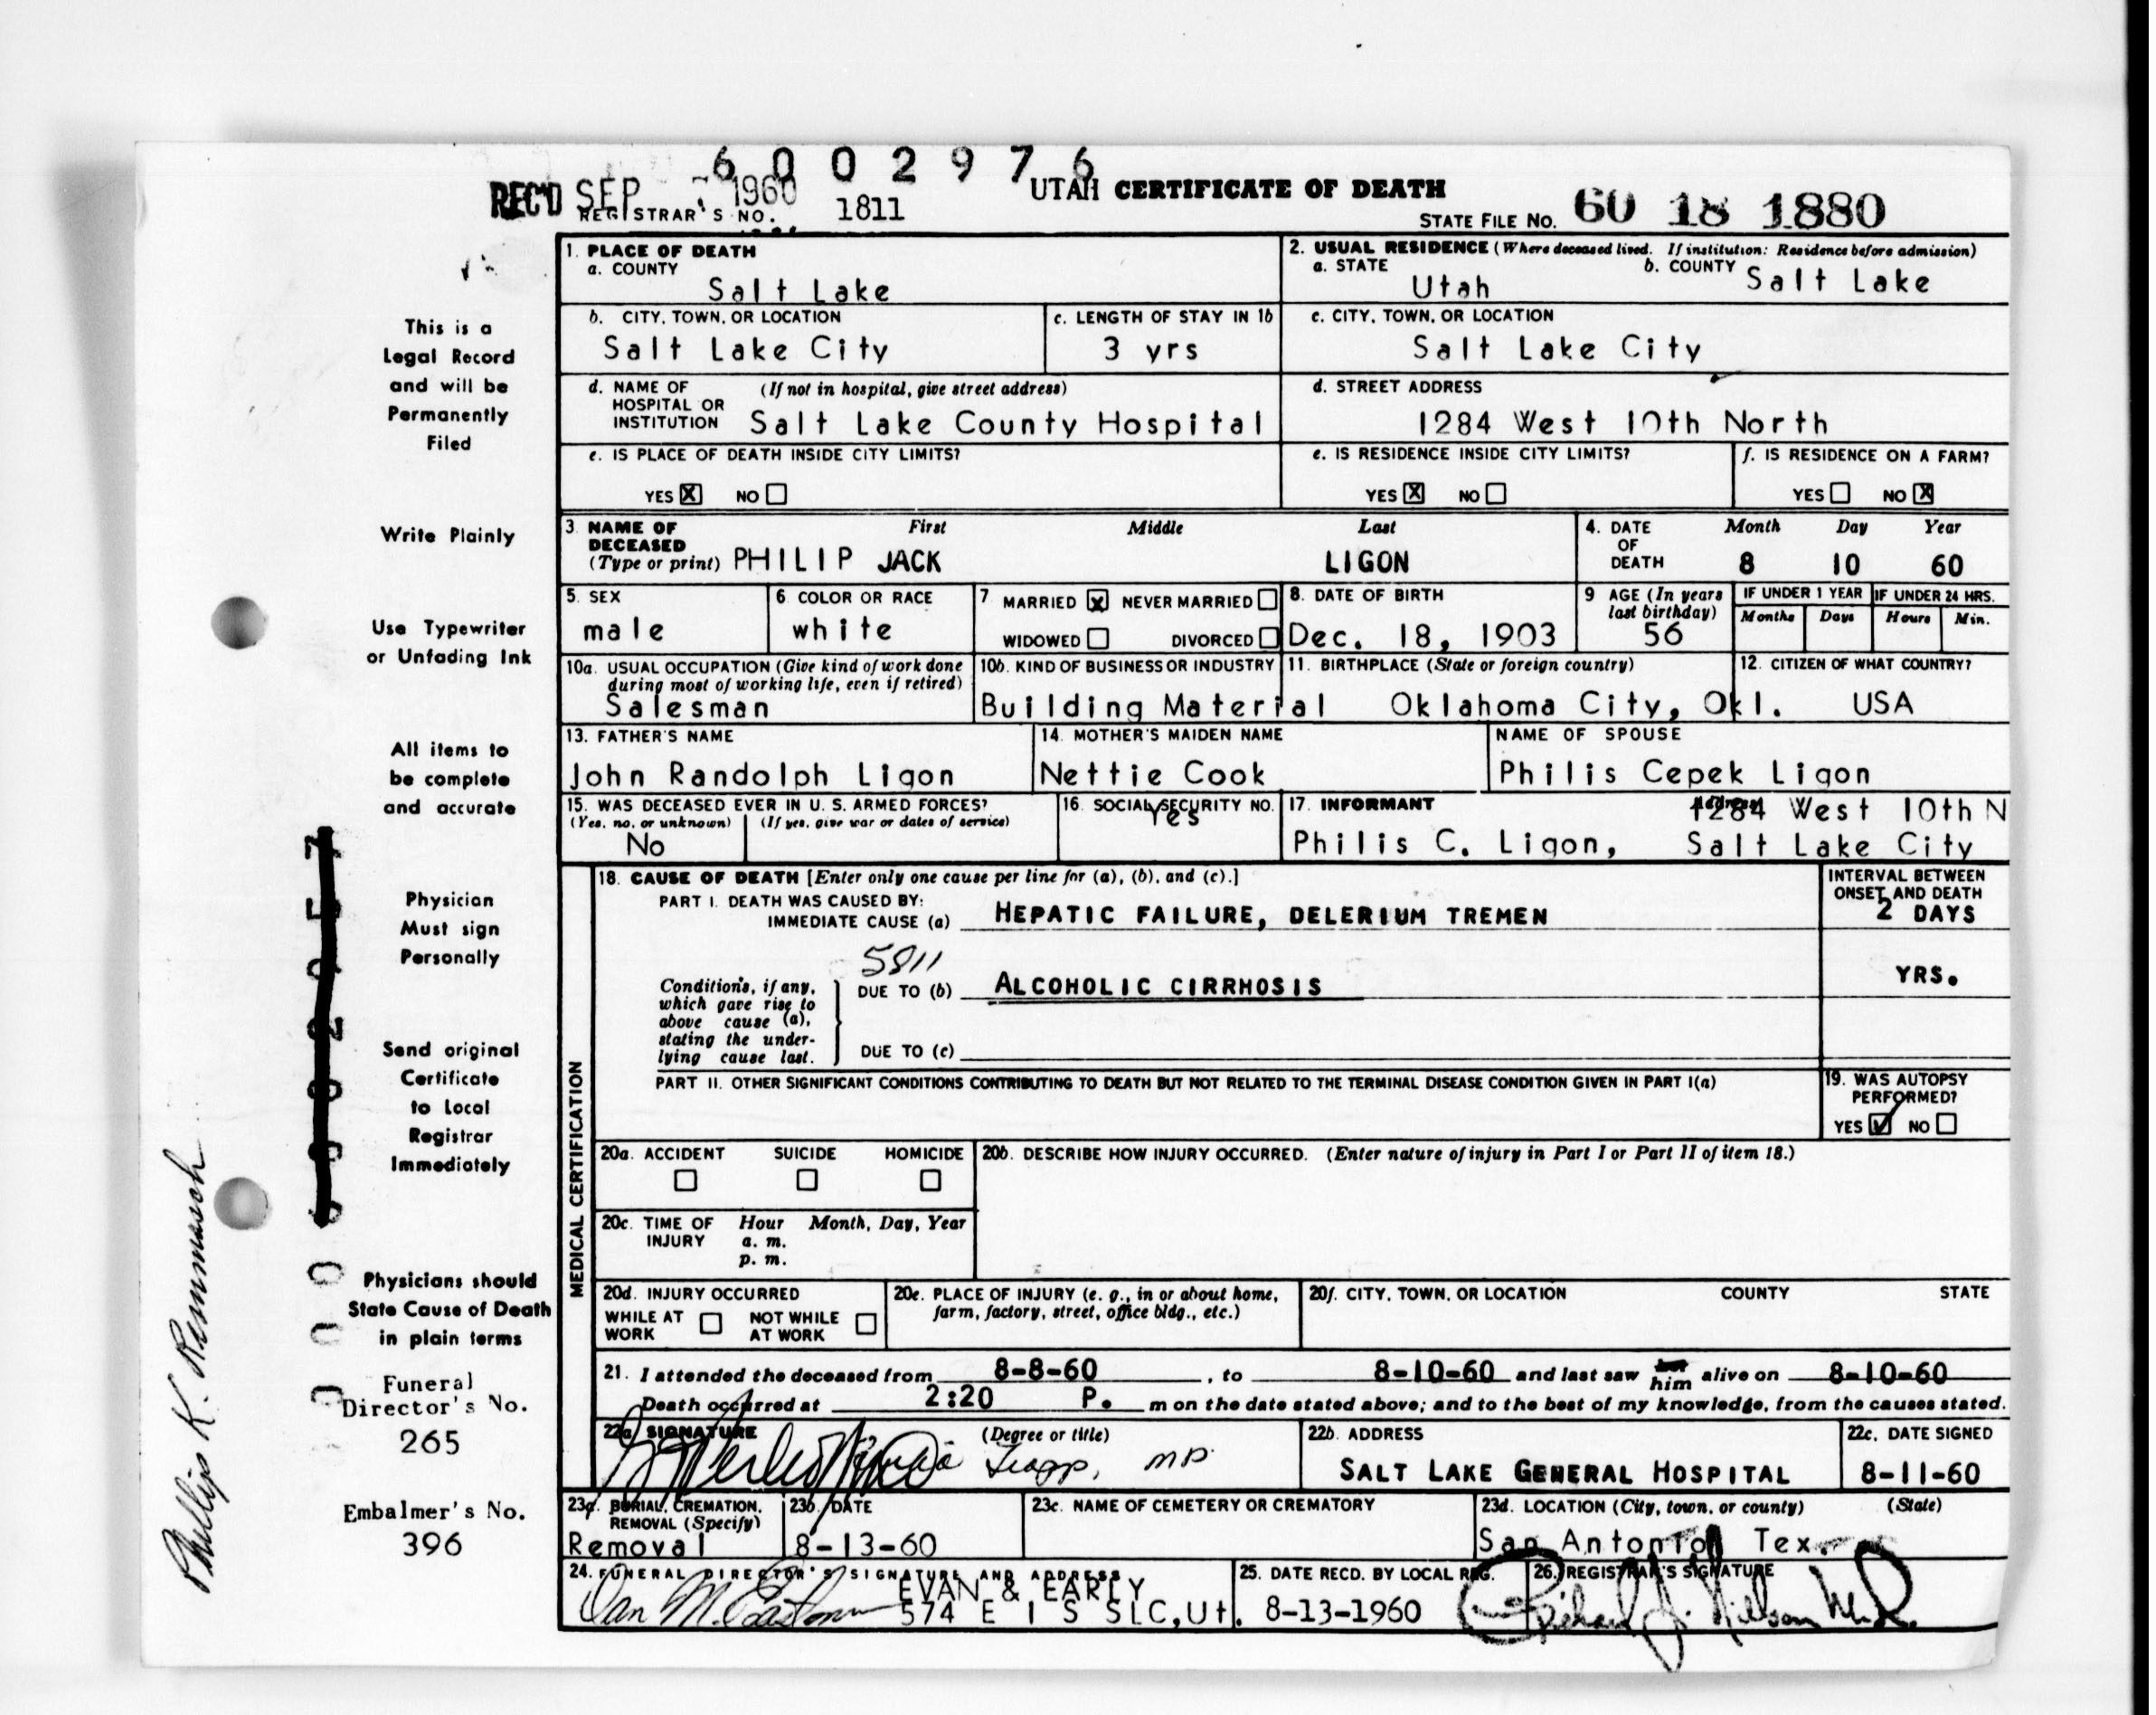 6 0 0 2 9 7 6
REC'D SEP 1960
REGISTRAR'S NO. 1811
UTAH CERTIFICATE OF DEATH
STATE FILE NO. 60 18 1880
This is a
Legal Record
and will be
Permanently
Filed
Write Plainly
Use Typewriter
or Unfading Ink
All items to
be complete
and accurate
Physician
Must sign
Personally
Send original
Certificate
to Local
Registrar
Immediately
Physicians should
State Cause of Death
in plain terms
Funeral
Director's No.
265
Embalmer's No.
396
1. PLACE OF DEATH
a. COUNTY
Salt Lake
2. USUAL RESIDENCE (Where deceased lived. If institution: Residence before admission)
a. STATE
Utah
b. COUNTY Salt Lake
b. CITY, TOWN, OR LOCATION
Salt Lake City
c. LENGTH OF STAY IN 1b
3 yrs
c. CITY, TOWN, OR LOCATION
Salt Lake City
d. NAME OF (If not in hospital, give street address)
HOSPITAL OR
INSTITUTION Salt Lake County Hospital
d. STREET ADDRESS
1284 West 10th North
e. IS PLACE OF DEATH INSIDE CITY LIMITS?
YES X NO
e. IS RESIDENCE INSIDE CITY LIMITS?
YES X NO
f. IS RESIDENCE ON A FARM?
YES NO X
3. NAME OF First Middle Last
DECEASED
(Type or print) PHILIP JACK LIGON
4. DATE Month Day Year
OF
DEATH 8 10 60
5. SEX
male
6. COLOR OR RACE
white
7. MARRIED X NEVER MARRIED
WIDOWED DIVORCED
8. DATE OF BIRTH
Dec. 18, 1903
9 AGE (In years
last birthday)
56
IF UNDER 1 YEAR IF UNDER 24 HRS.
Months Days Hours Min.
10a. USUAL OCCUPATION (Give kind of work done
during most of working life, even if retired)
Salesman
10b. KIND OF BUSINESS OR INDUSTRY
Building Material
11. BIRTHPLACE (State or foreign country)
Oklahoma City, Okl.
12. CITIZEN OF WHAT COUNTRY?
USA
13. FATHER'S NAME
John Randolph Ligon
14. MOTHER'S MAIDEN NAME
Nettie Cook
NAME OF SPOUSE
Philis Cepek Ligon
15. WAS DECEASED EVER IN U. S. ARMED FORCES?
(Yes, no, or unknown) (If yes, give war or dates of service)
No
16. SOCIAL SECURITY NO.
Yes
17. INFORMANT Address
1284 West 10th N
Philis C. Ligon, Salt Lake City
MEDICAL CERTIFICATION
18. CAUSE OF DEATH [Enter only one cause per line for (a), (b), and (c).]
INTERVAL BETWEEN
ONSET AND DEATH
PART I. DEATH WAS CAUSED BY:
IMMEDIATE CAUSE (a) HEPATIC FAILURE, DELERIUM TREMEN
2 DAYS
5811
Conditions, if any,
which gave rise to
above cause (a),
stating the under-
lying cause last.
DUE TO (b) ALCOHOLIC CIRRHOSIS
YRS.
DUE TO (c)
PART II. OTHER SIGNIFICANT CONDITIONS CONTRIBUTING TO DEATH BUT NOT RELATED TO THE TERMINAL DISEASE CONDITION GIVEN IN PART I(a)
19. WAS AUTOPSY
PERFORMED?
YES ✓ NO
20a. ACCIDENT SUICIDE HOMICIDE
20b. DESCRIBE HOW INJURY OCCURRED. (Enter nature of injury in Part I or Part II of item 18.)
20c. TIME OF Hour Month, Day, Year
INJURY a. m.
p. m.
20d. INJURY OCCURRED
WHILE AT NOT WHILE
WORK AT WORK
20e. PLACE OF INJURY (e. g., in or about home,
farm, factory, street, office bldg., etc.)
20f. CITY, TOWN, OR LOCATION COUNTY STATE
21. I attended the deceased from 8-8-60, to 8-10-60 and last saw him alive on 8-10-60
Death occurred at 2:20 P. m on the date stated above; and to the best of my knowledge, from the causes stated.
22a. SIGNATURE (Degree or title)
MD
22b. ADDRESS
SALT LAKE GENERAL HOSPITAL
22c. DATE SIGNED
8-11-60
23a. BURIAL, CREMATION,
REMOVAL (Specify)
Removal
23b. DATE
8-13-60
23c. NAME OF CEMETERY OR CREMATORY
23d. LOCATION (City, town, or county) (State)
San Antonio Tex.
24. FUNERAL DIRECTOR'S SIGNATURE AND ADDRESS
EVAN & EARLY
574 E 1 S SLC, Ut.
25. DATE RECD. BY LOCAL REG.
8-13-1960
26. REGISTRAR'S SIGNATURE